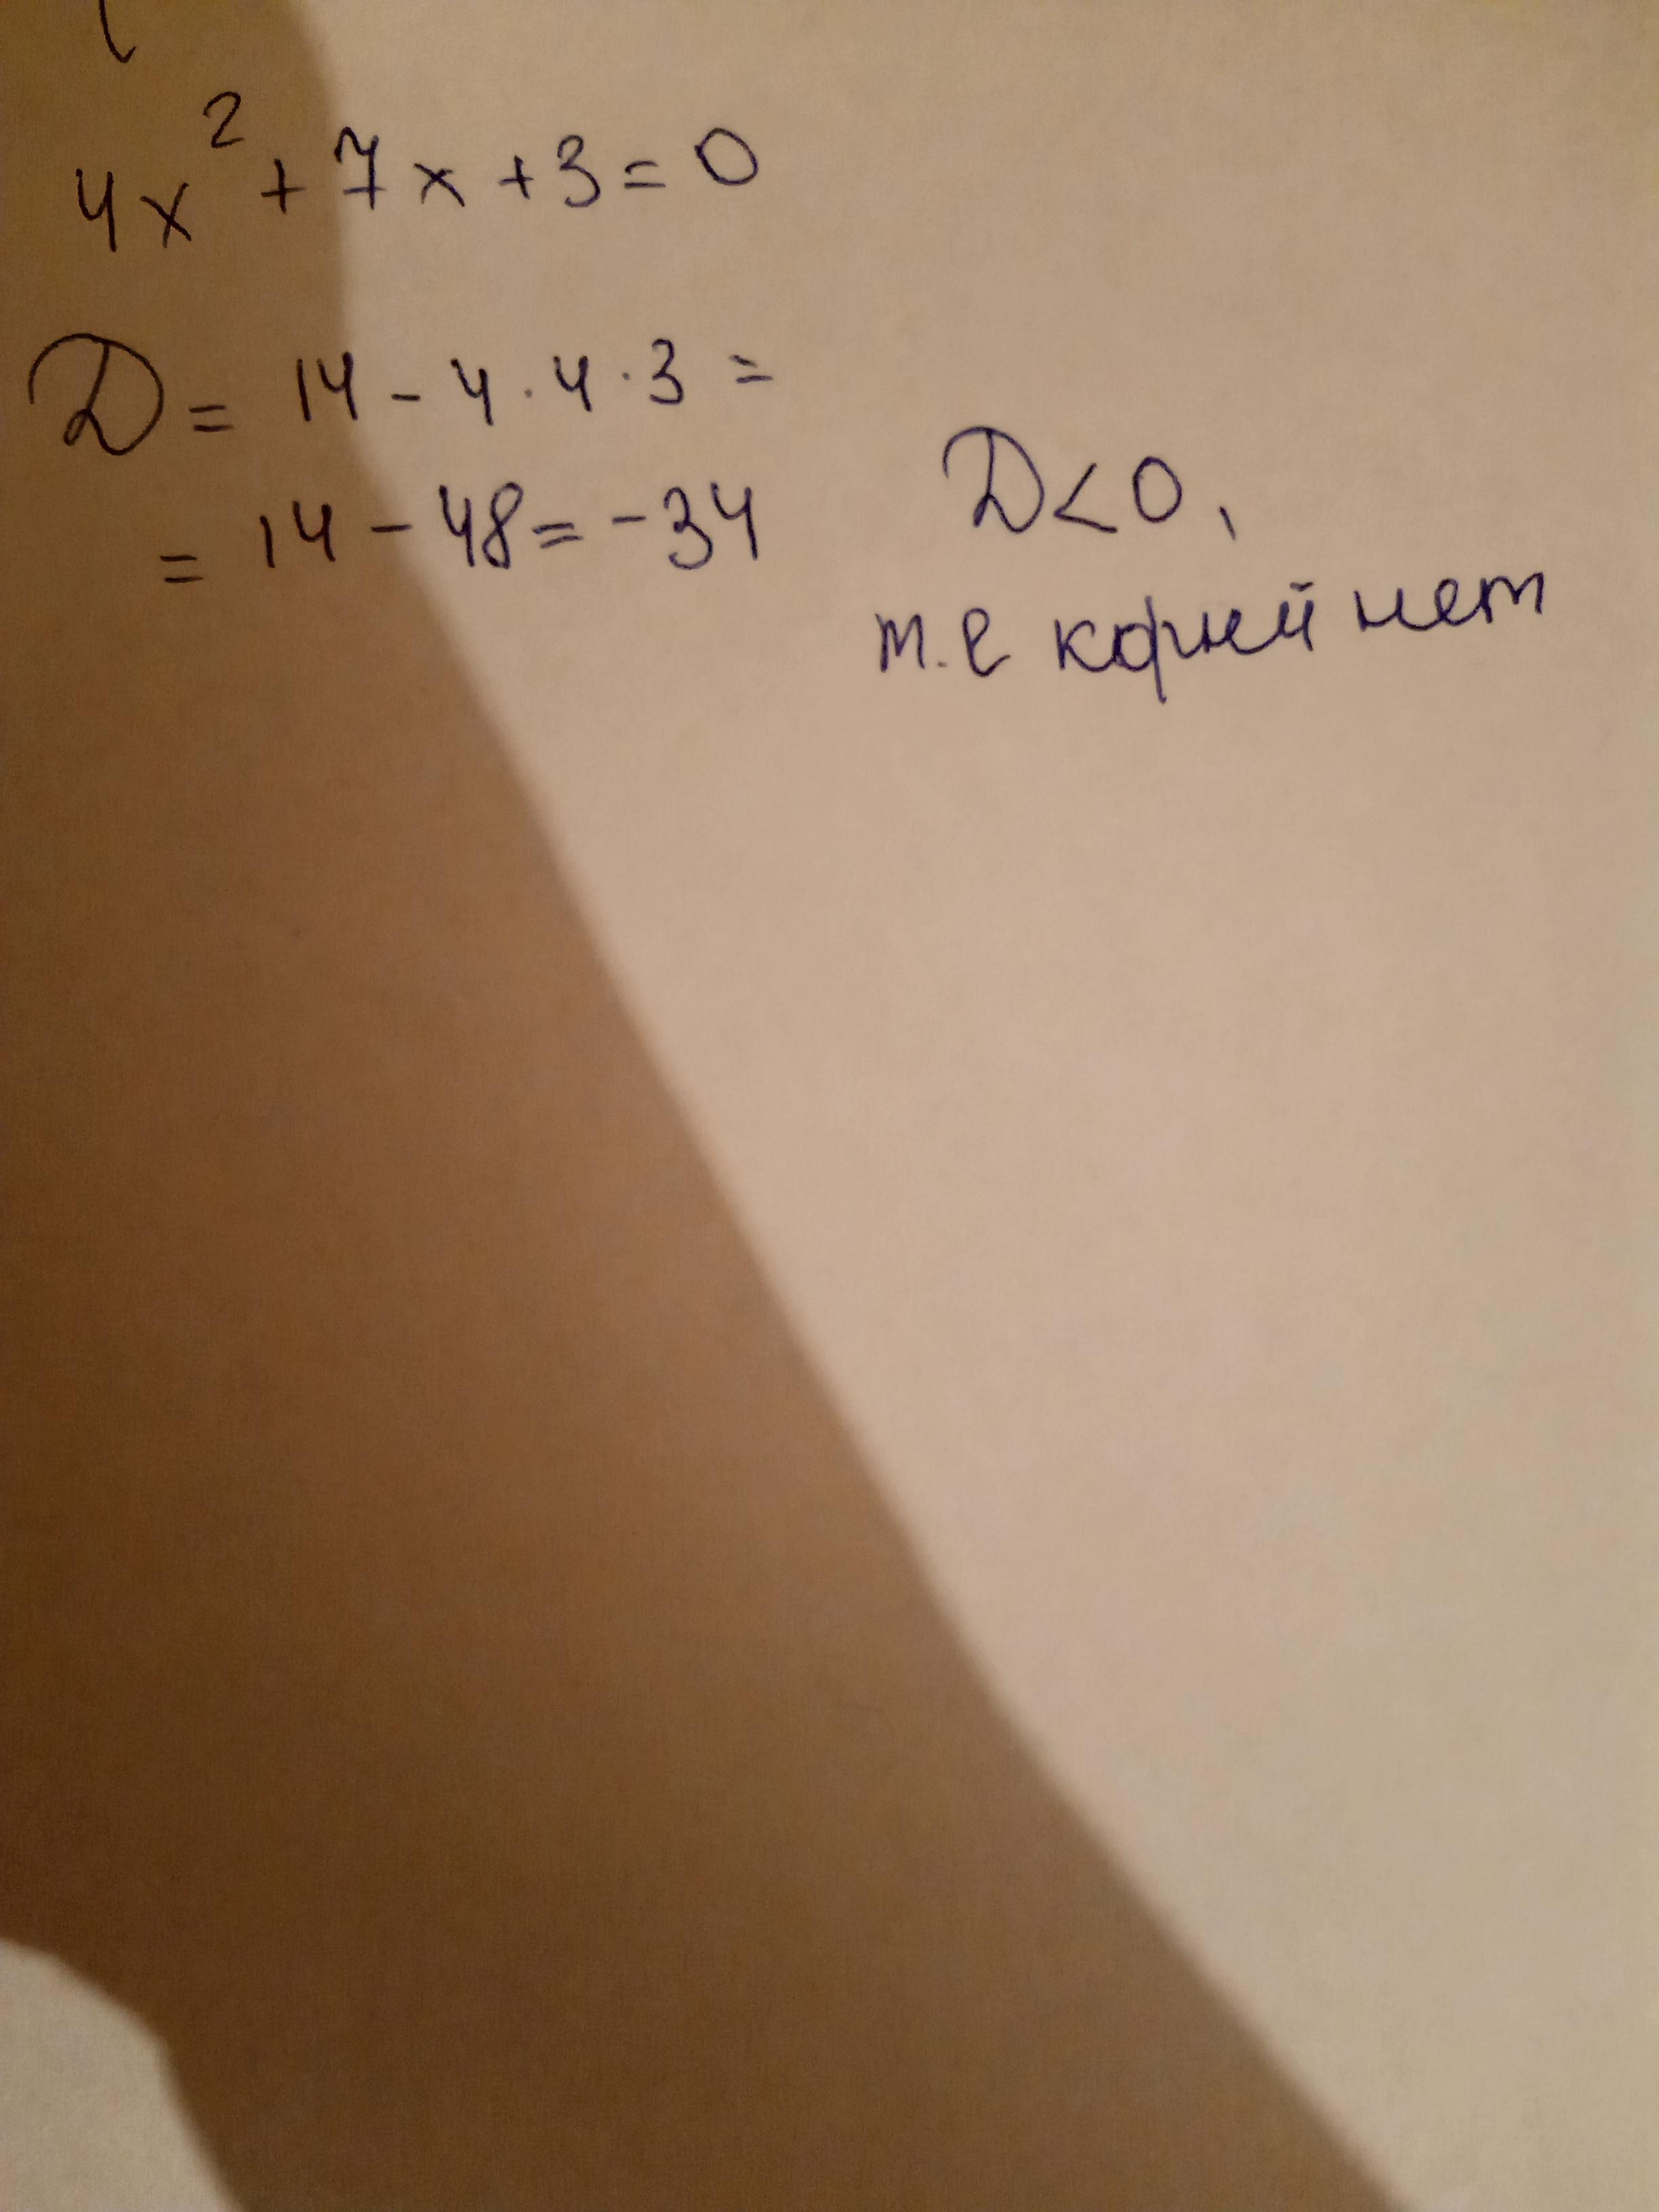 4x² + 7x + 3 = 0
D = 14 - 4 · 4 · 3 =
= 14 - 48 = -34
D < 0,
т.е корней нет